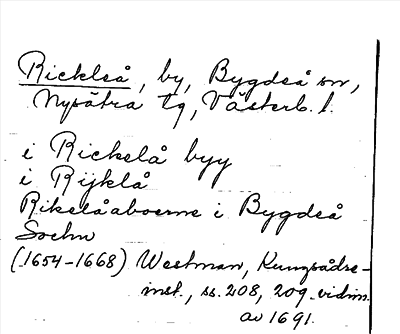 Rickleå, by, Bygdeå sn,
Nysätra tg, Västerb. l.
i Rickelå byy
i Rijklå
Rikelåaboerne i Bygdeå
Sochn
(1654-1668) Westman, Kungsådre-
inst., ss. 208, 209. vidim.
av 1691.